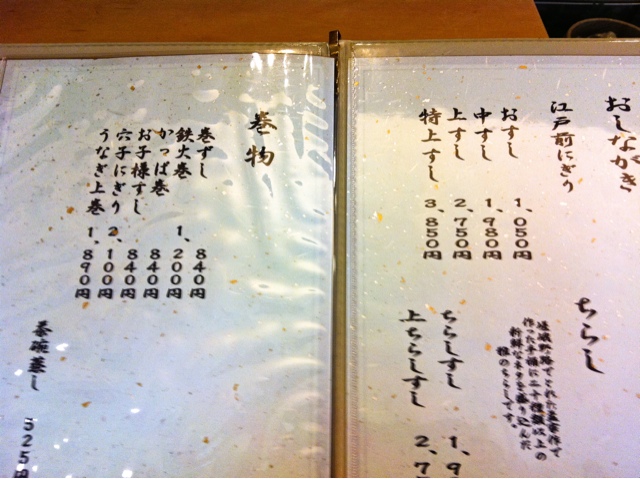 おしながき
江戸前にぎり
おすし 1、050円
中すし 1、980円
上すし 2、750円
特上すし 3、850円
ちらし
作った手桶に二十種類以上の
新鮮なネタを盛り込んだ
雅のちらしです。
ちらしすし 1、9
上ちらしすし 2、7
巻物
巻ずし 840円
鉄火巻 1、200円
かっぱ巻 840円
お子様すし 840円
穴子にぎり 2、100円
うなぎ上巻 1、890円
茶碗蒸し 525円